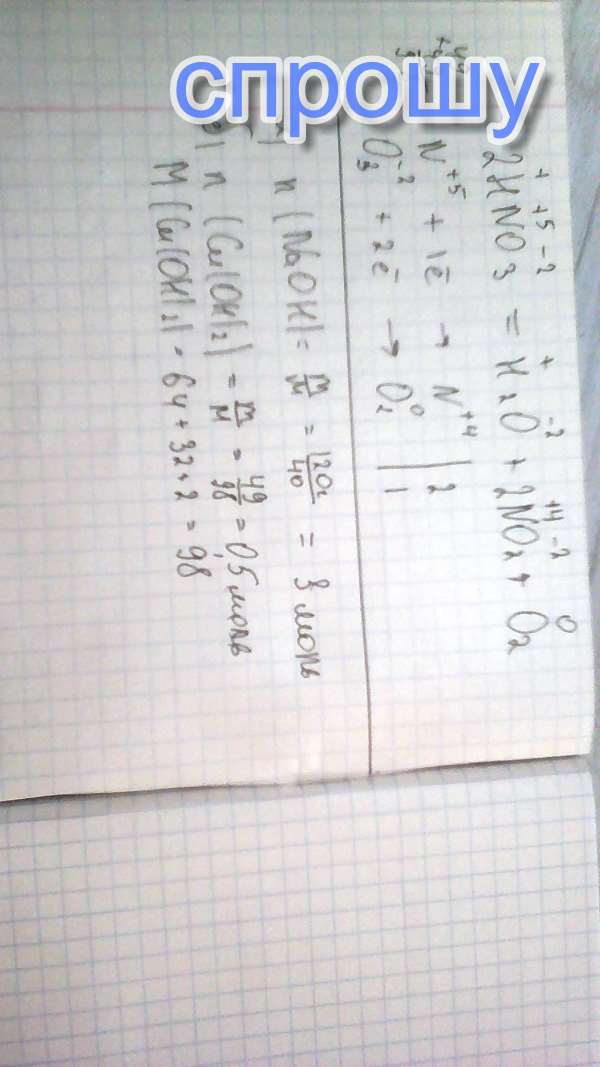 спрошу
+ +5 -2 + -2 +4 -2 0
2HNO3 = H2O + 2NO2 + O2
N+5 + 1ē → N+4 | 2
O3-2 + 2ē → O2 0 | 1
n (NaOH) = m/M = 120г/40 = 3 моль
n (Cu(OH)2) = m/M = 49/98 = 0,5 моль
M (Cu(OH)2) = 64 + 32 + 2 = 98